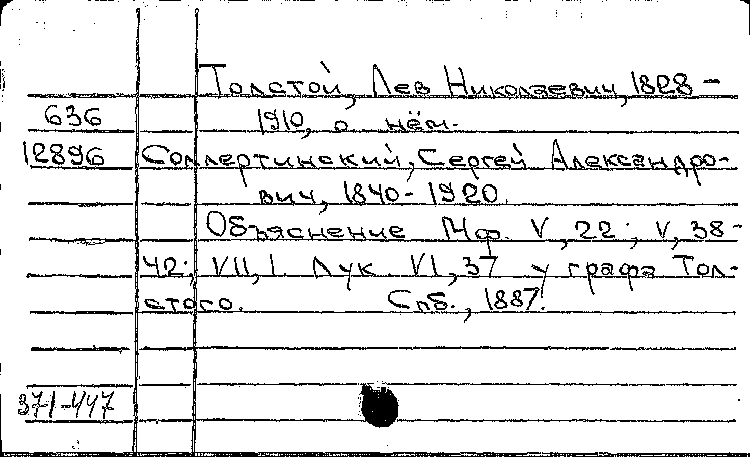 Толстой, Лев Николаевич, 1828-
636 1910, о нём.
12896 Соллертинский, Сергей Александро-
вич, 1840-1920.
Объяснение Мф. V, 22; V, 38-
42; VII, 1. Лук. VI, 37 у графа Тол-
стого. Спб., 1887.
371-447